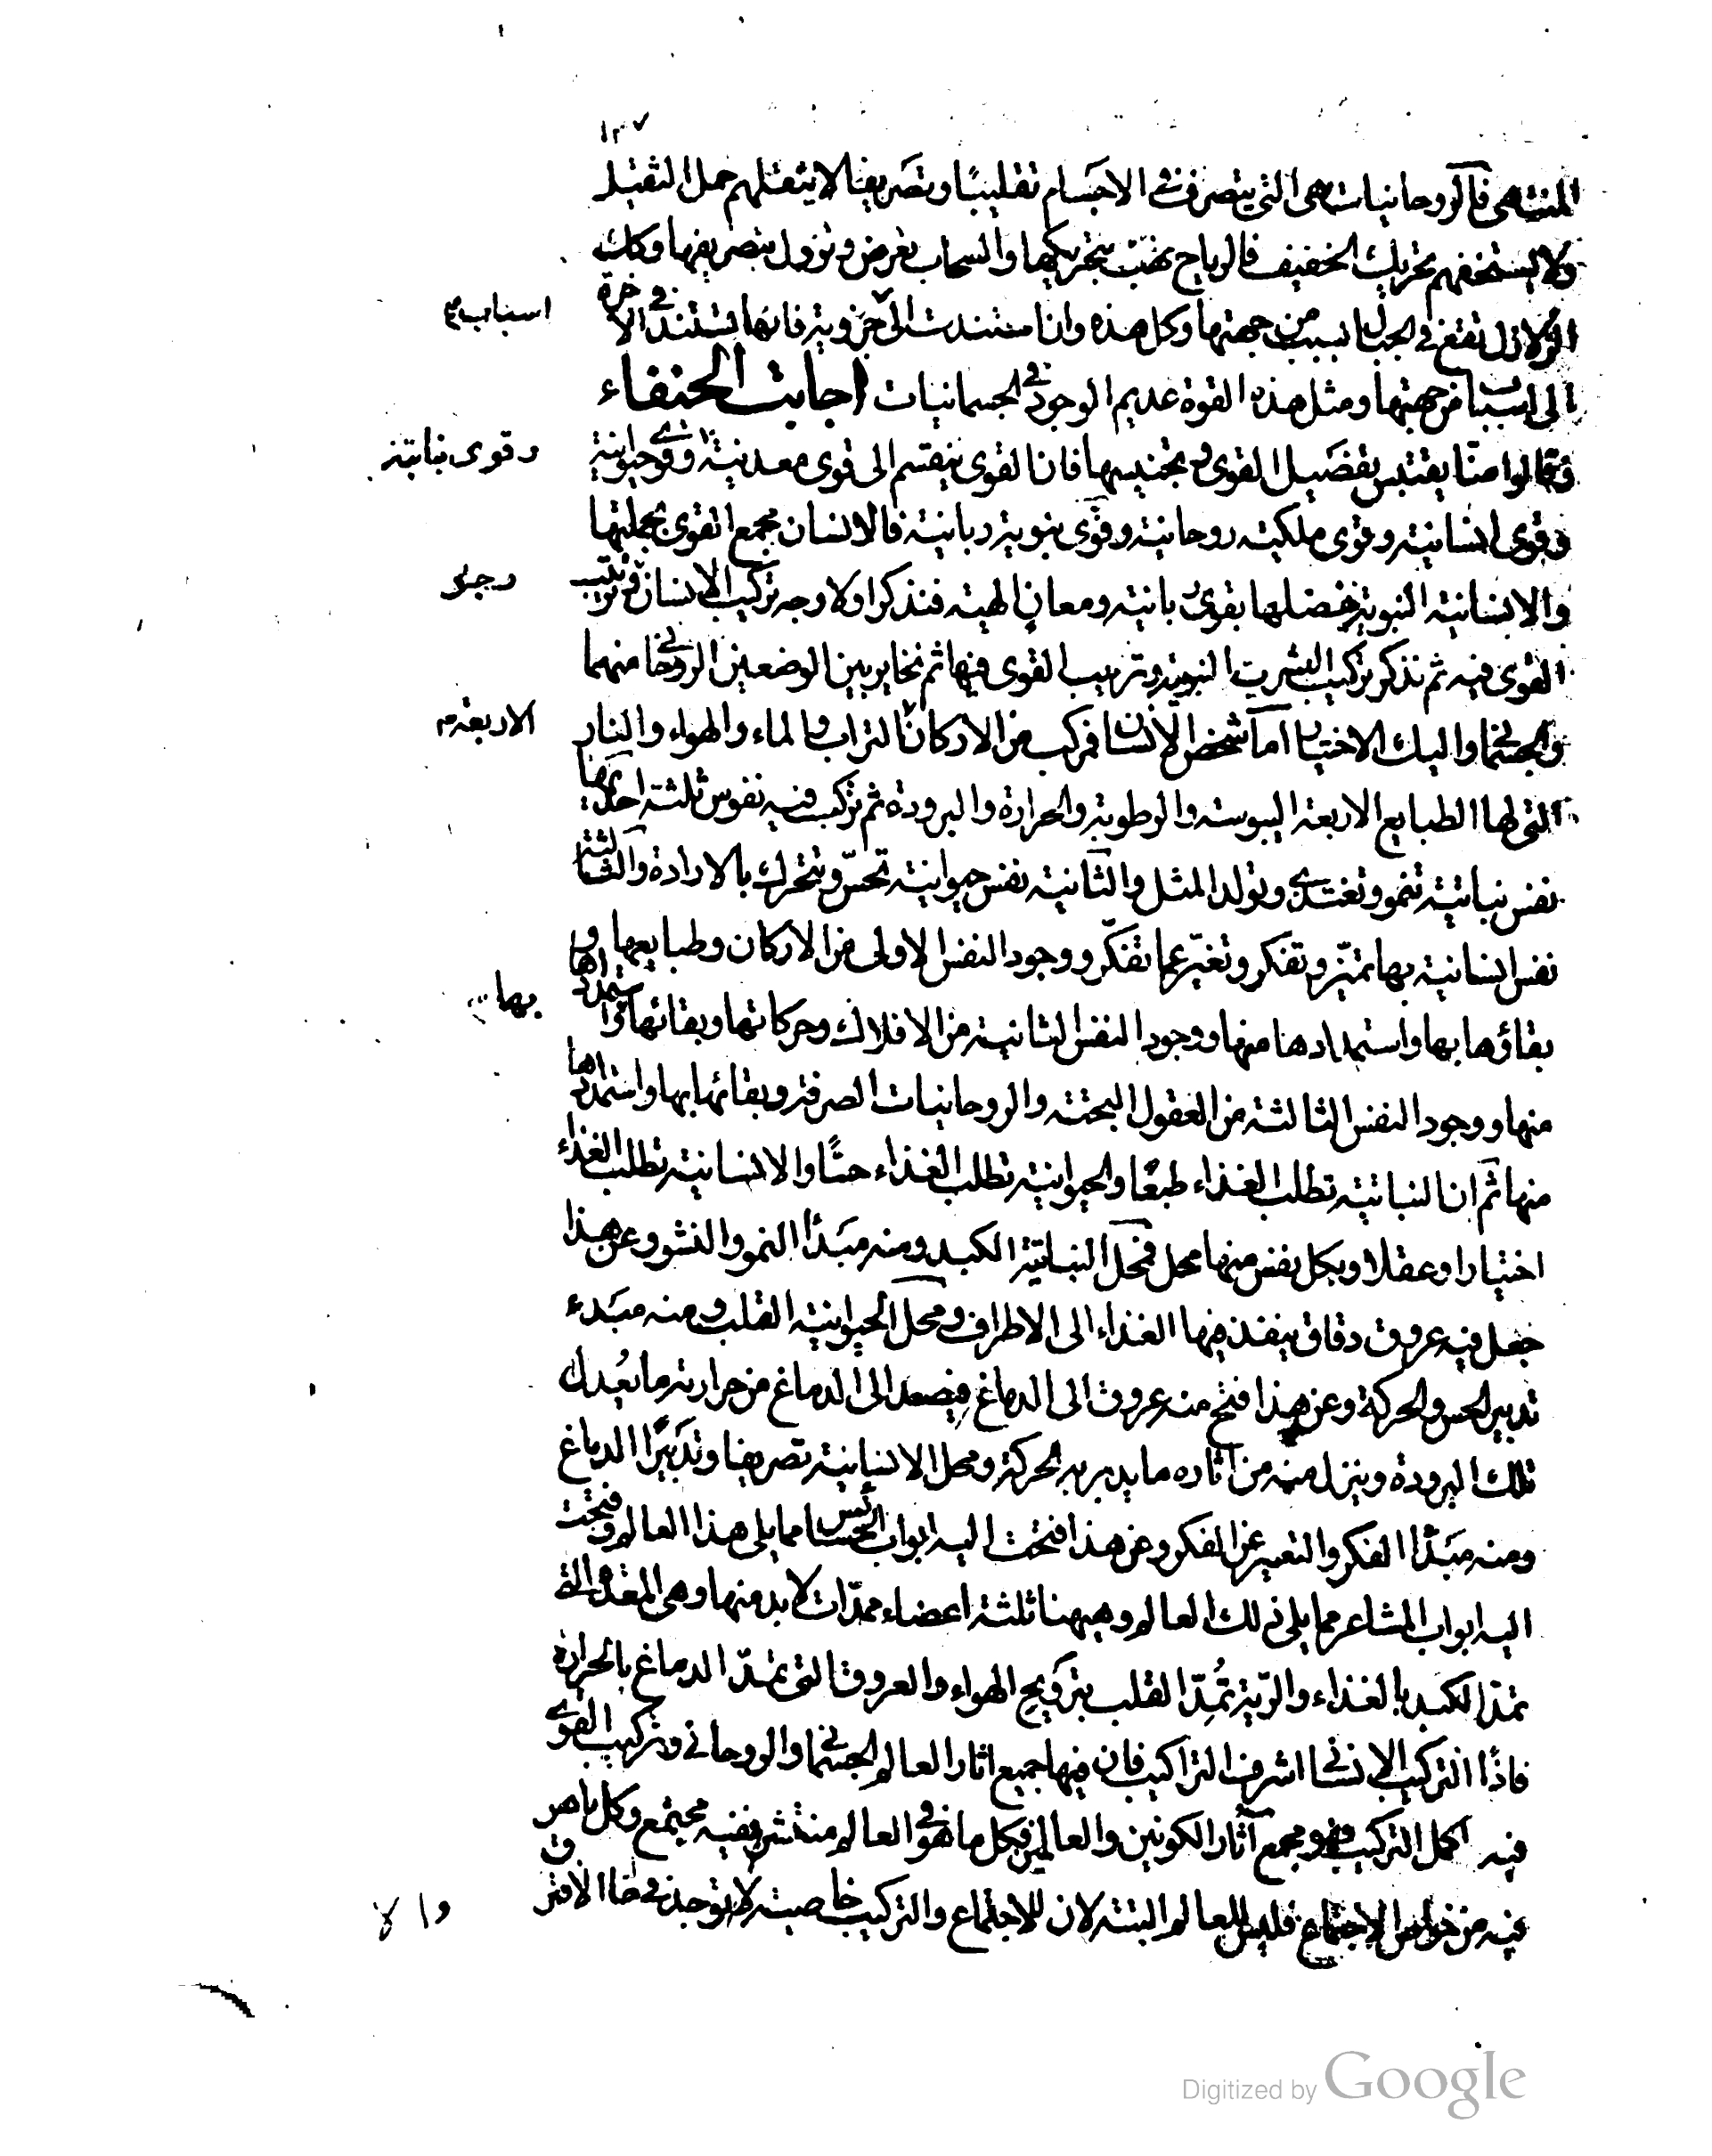 ١٣٧
المنتهى فالروحانيات هى التى يتصرف فى الاجسام تقليبًا وتصريفا لا يثقلهم حمل الثقيل
ولا يستخفهم تحريك الخفيف فالرياح تهب بتحريكها والسحاب يعرض ويزول بتصريفها وكذلك
الزلازل تقع فى الجبال بسبب من جهتها وكل هذه وان استندت الى جزوية فانها تستند فى الاخرة
اسباب
الى اسباب من جهتها ومثل هذه القوة عديم الوجود فى الجسمانيات اجابت الحنفاء
وقالوا منا يقتبس تفصيل القوى وتجنيسها فان القوى ينقسم الى قوى معدنية وقوى حيوانية
وقوى نباتية
وقوى انسانية وقوى ملكية روحانية وقوى نبوية ربانية فالانسان مجمع القوى بجملتها
والانسانية النبوية تفضلها بقوى ربانية ومعان الهية فنذكر اولا وجه تركيب الانسان وترتيب
وجه
القوى فيه ثم نذكر تركيب البشرية النبوية وترتيب القوى فيها ثم نخاير بين الوضعين الروحانى منهما
والجسمانى واليك الاختيار اما شخص الانسان فمركب من الاركان التراب والماء والهواء والنار
الاربعة
التى لها الطبايع الاربعة اليبوسة والرطوبة والحرارة والبرودة ثم تركب فيه نفوس ثلثة احديها
نفس نباتية تنمو وتغتذى وتولد المثل والثانية نفس حيوانية تحسّ وتتحرك بالارادة والثالثة
نفس انسانية بها تميّز وتفكر وتعبّر عما تفكّر ووجود النفس الاولى من الاركان وطبايعها و
بقاؤها بها واستمدادها منها ووجود النفس الثانية من الافلاك وحركاتها وبقائها واستمدادها
بها
منها ووجود النفس الثالثة من العقول البحتة والروحانيات الصرفة وبقائها بها واستمدادها
منها ثم ان النباتية تطلب الغذاء طبعًا والحيوانية تطلب الغذاء حسًا والانسانية تطلب الغذاء
اختيارا وعقلا ولكل نفس منها محل فمحل النباتية الكبد ومنه مبدأ النمو والنشو وعن هذا
جعل فيه عروق دقاق ينفذ فيها الغذاء الى الاطراف ومحل الحيوانية القلب ومنه مبدء
تدبير الحس والحركة وعن هذا فتح منه عروق الى الدماغ فيصعد الى الدماغ من حرارته ما يعدل
تلك البرودة وينزل منه من آثاره ما يدبر به الحركة ومحل الانسانية تصريفا وتدبيرًا الدماغ
ومنه مبدأ الفكر والتعبير عن الفكر وعن هذا فتحت اليه ابواب الحسّاس مما يلى هذا العالم وفتحت
اليه ابواب المشاعر مما يلى ذلك العالم وهيهنا ثلثة اعضاء ممدّات لا بد منها وهى المعدة التى
تمد الكبد بالغذاء والرّية تُمِدّ القلب بترويح الهواء والعروق التى تمدّ الدماغ بالحرارة
فاذًا التركيب الانسانى اشرف التراكيب فان فيها جميع اثار العالم الجسمانى والروحانى وتركيب القوى
فيه اكمل التركيب وهو مجمع آثار الكونين والعالمين فكل ما هو فى العالم منتشر ففيه مجتمع وكل ما هو
فيه من خواص الاجتماع فليس للعالم البتة لان للاجتماع والتركيب خاصية لا توجد فى حال الافتراق
والا
Digitized by Google